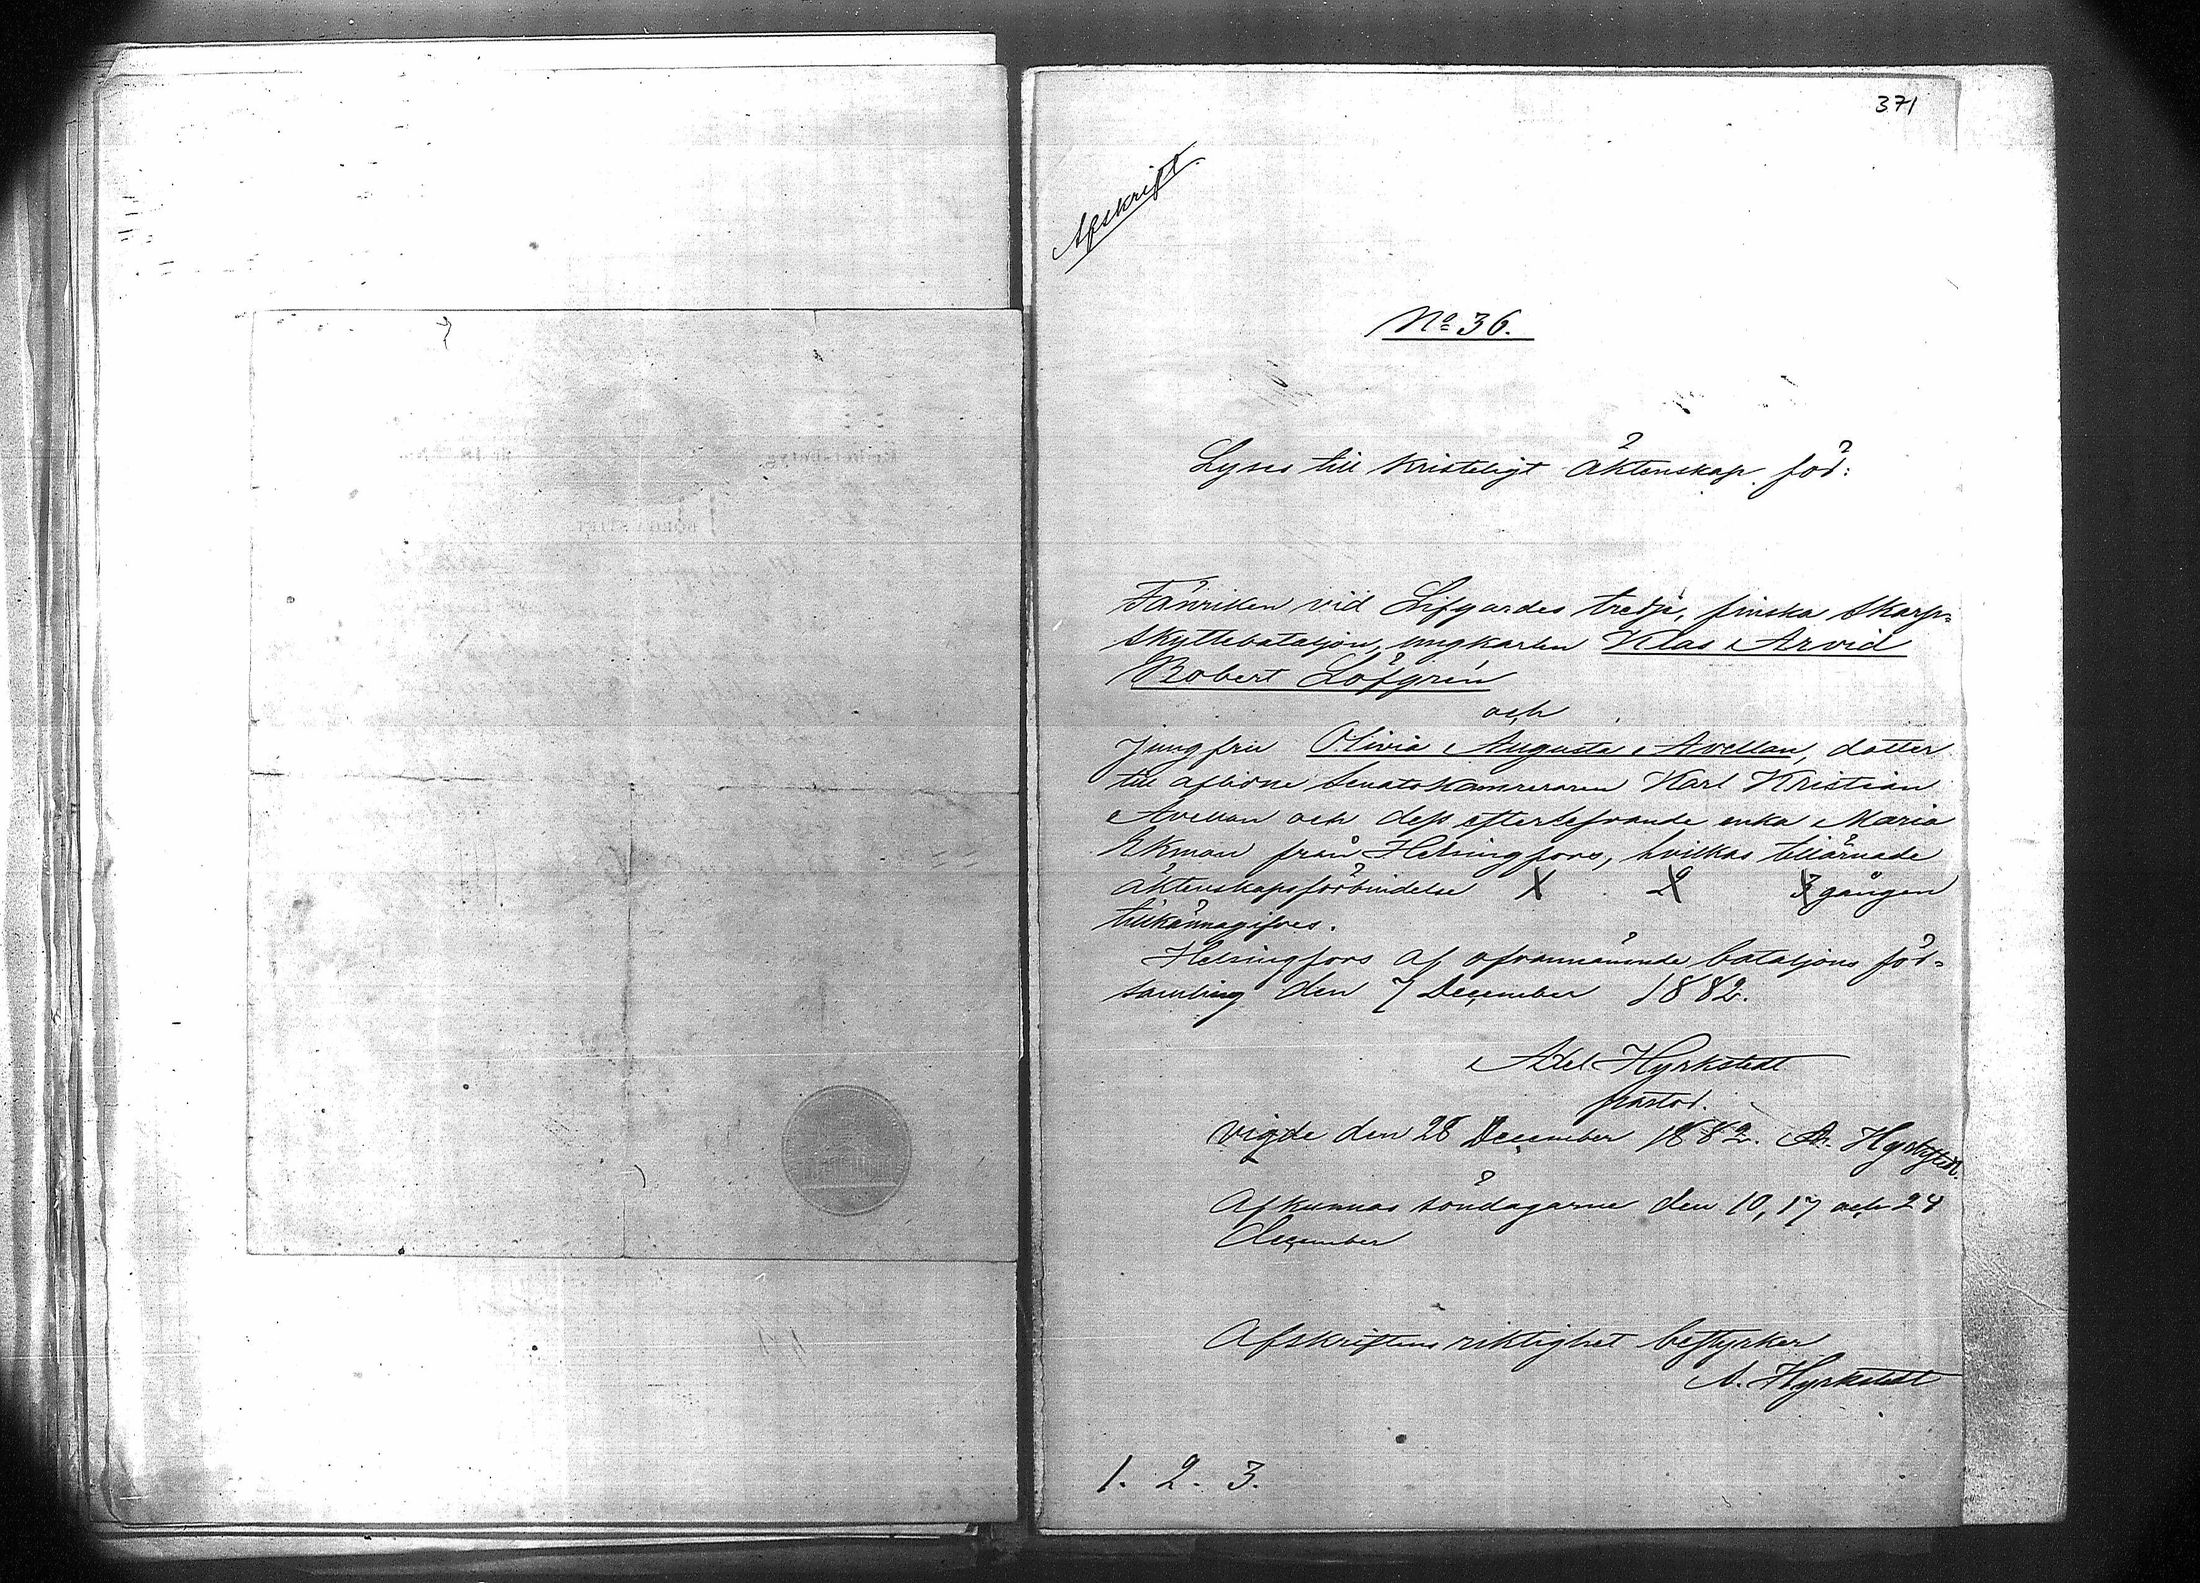 371
Afskrift.
No 36.
Lyses till kristeligt äktenskap för:
Fänriken vid Lifgardes tredje, finska Skarp-
skyttebataljon, ungkarlen Klas Arvid
Robert Löfgrén
och
Jungfru Olivia Augusta Avellan, dotter
till aflidne Senatskamreraren Karl Kristian
Avellan och dess efterlefvande enka Maria
Ekman från Helsingfors, hvilkas tillärnade
äktenskapsförbindelse 1 2 3 gången
tillkännagifves.
Helsingfors af ofvannämnde bataljons för-
samling den 7 December 1882.
Axel Hyrkstedt
pastor.
Vigde den 28 December 1882. A. Hyrkstedt.
Afkunnas söndagarne den 10, 17 och 24
December
Afskriftens riktighet bestyrker
A. Hyrkstedt
1. 2. 3.